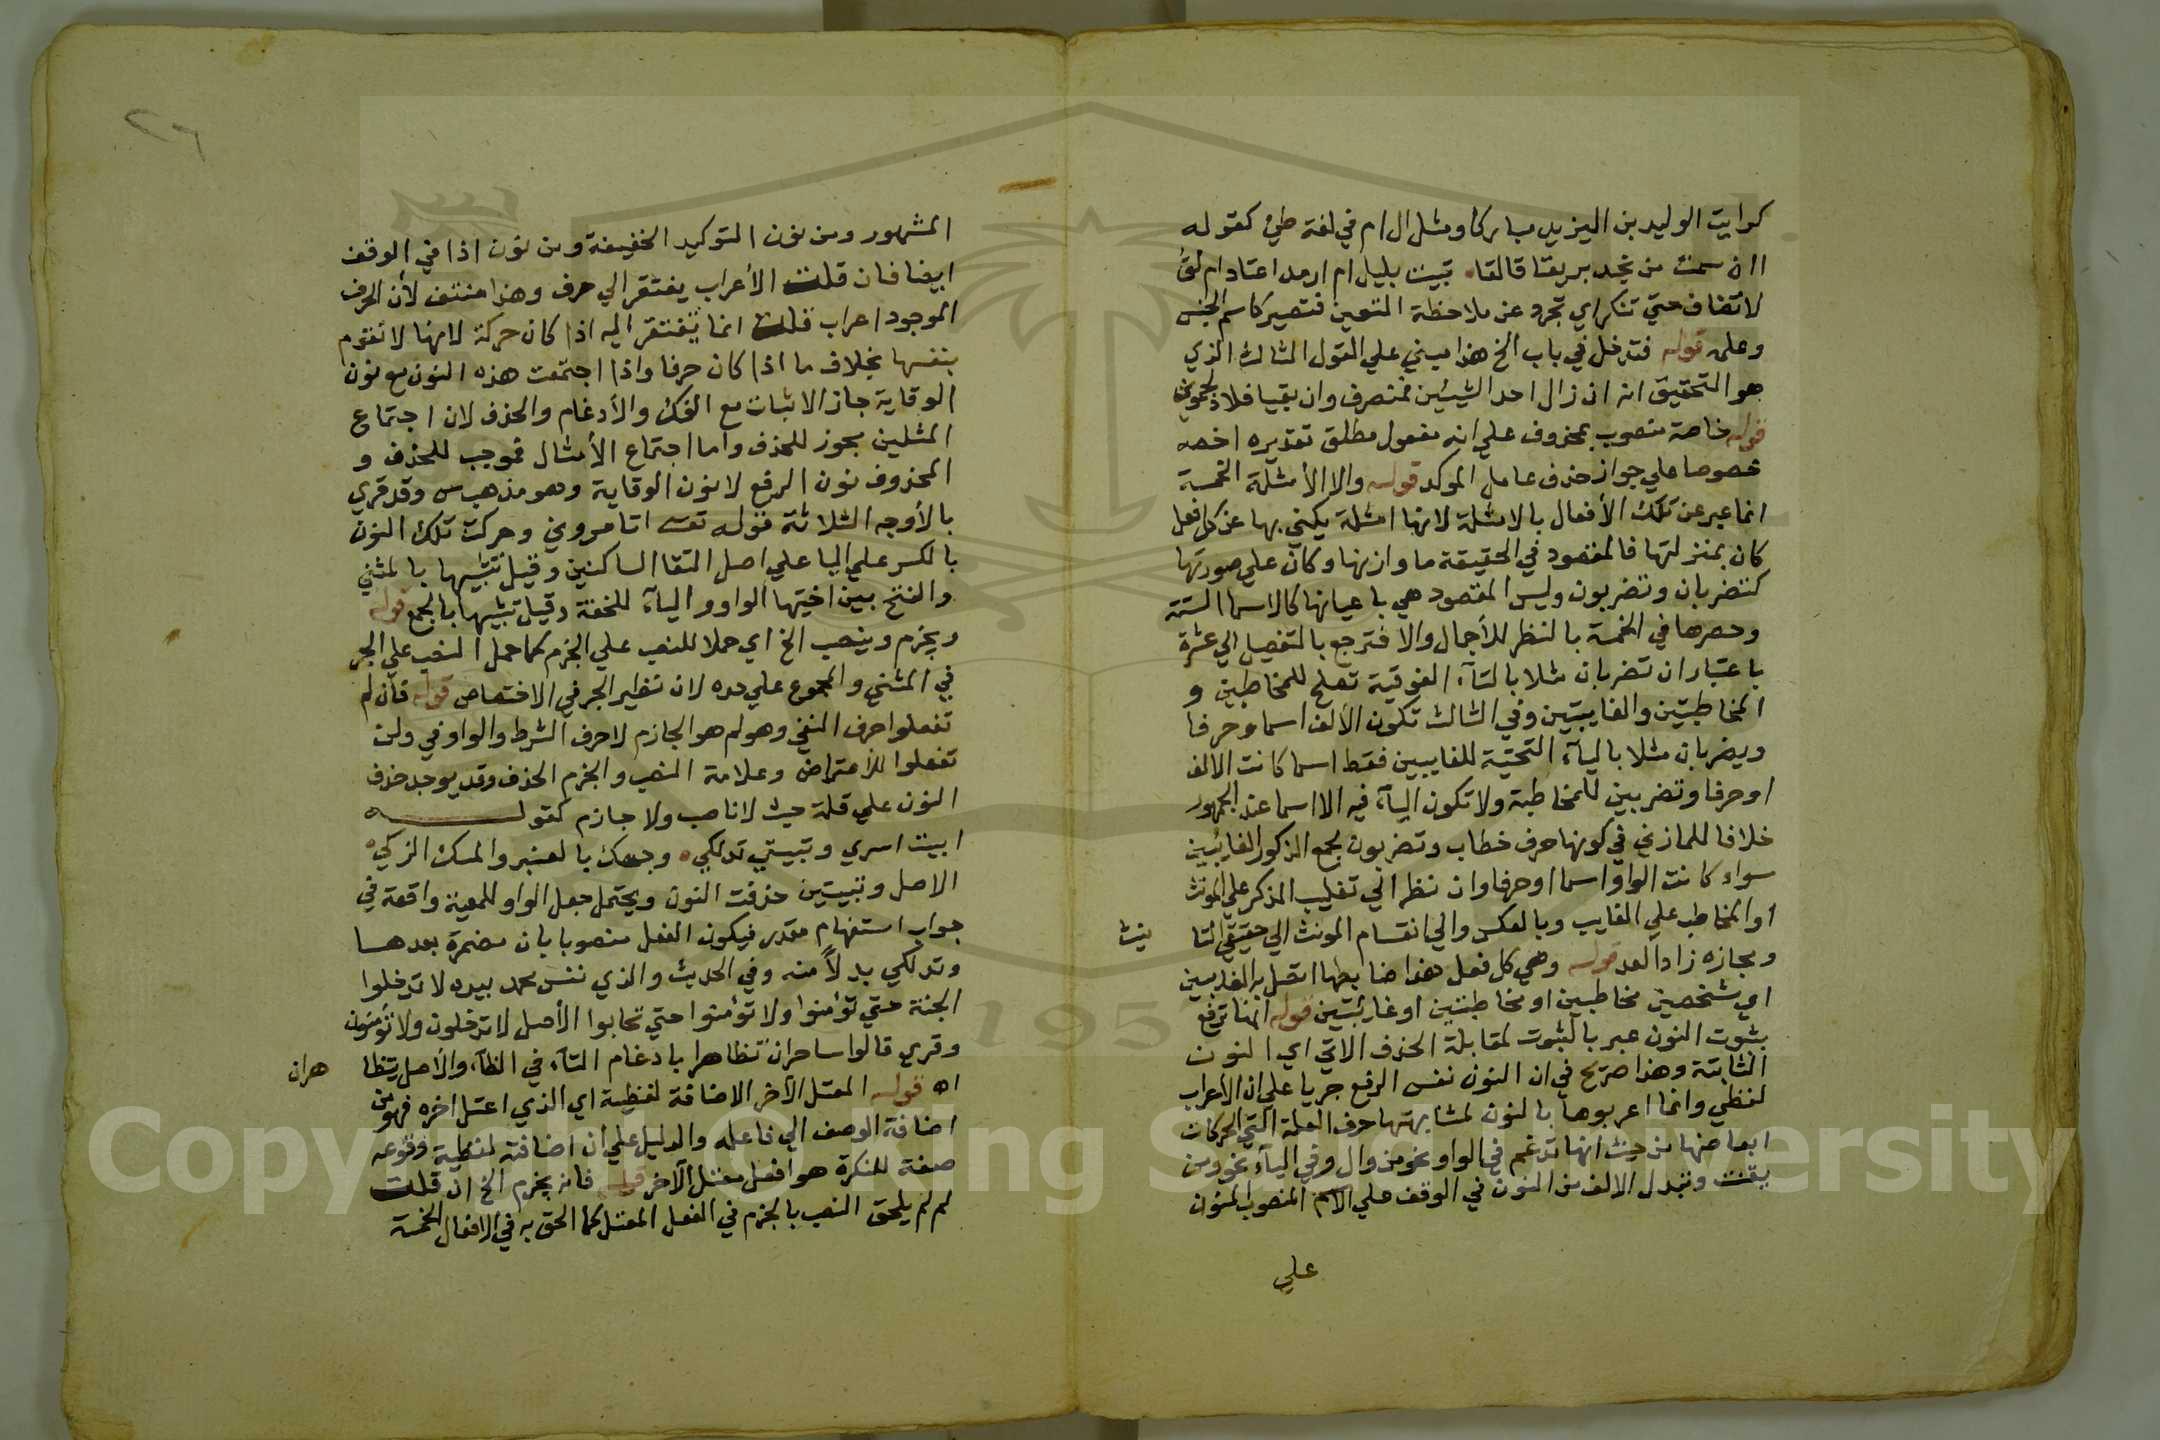 كرايت الوليد بن اليزيد مباركا ومثل ال ام في لغة طي كقوله
اان سمت من نجد بريقا تالقا تبيت بليل ام ارمد اعتاد ام لق
لا تضاف حتي تنكر اي تجرد عن ملاحظة التعين فتصير كاسم الجنس
وعلى قوله فتدخل في باب الخ هذا مبني علي القول الثالث الذي
هو التحقيق انه ان زال احد الشيئين فمنصرف وان بقيا فلا
قوله خاصة منصوب بمحذوف علي انه مفعول مطلق تقديره اخصه
خصوصا علي جواز حذف عامل الموكد قوله والا الأمثلة الخمسة
انما عبر عن تلك الأفعال بالامثلة لانها امثلة يكني بها عن كل فعل
كان بمنزلتها فالمقصود في الحقيقة ما وازنها وكان علي صورتها
كتضربان وتضربون وليس المقصود هي باعيانها كالاسما الستة
وحصرها في الخمسة بالنظر للأجمال والا فترجع بالتفصيل الي عشرة
باعتبار ان تضربان مثلا بالتآء الفوقية تصلح للمخاطبين و
المخاطبتين والغايبتين وفي الثالث تكون الألف اسما وحرفا
ويضربان مثلا باليآء التحتية للغايبين فقط اسما كانت الالف
اوحرفا وتضربين للمخاطبة ولا تكون اليآء فيه الا اسما عند الجمهور
خلافا للمازني في كونها حرف خطاب وتضربون لجمع الذكور الغايبين
سواء كانت الواو اسما اوحرفا وان نظر الي تغليب المذكر علي المونث
او المخاطب علي الغايب وبالعكس والي انقسام المونث الي حقيقي التا نيث
ومجازه زاد العد قوله وهي كل فعل هذا ضابطها اتصل به الف اثنين
اي شخصين مخاطبين او مخاطبتين او غائبتين قوله انها ترفع
بثبوت النون عبر بالثبوت لمقابلة الحذف الاتي اي النون
الثابتة وهذا صريح في ان النون نفس الرفع جريا علي ان الأعراب
لفظي وانما اعربوها بالنون لمشابهتها حرف العلة التي الحركات
ابعاضها من حيث انها تدغم في الواو نحو من وال وفي اليآء نحو ومن
يقنت وتبدل الالف من النون في الوقف علي الاسم المنصوب المنون
علي
المشهور ومن نون التوكيد الخفيفة ومن نون اذا في الوقف
ايضا فان قلت الأعراب يفتقر الي حرف وهذا منتف لأن الحرف
الموجود اعراب قلت انما يفتقر اليه اذا كان حركة لانها لا تقوم
بنفسها بخلاف ما اذا كان حرفا واذا اجتمعت هذه النون مع نون
الوقاية جاز الاثبات مع الفك والأدغام والحذف لان اجتماع
المثلين مجوز للحذف واما اجتماع الأمثال فموجب للحذف و
المحذوف نون الرفع لا نون الوقاية وهو مذهب س وقد قري
بالأوجه الثلاثة قوله تعى اتامروني وحركت تلك النون
بالكسر علي اليا علي اصل التقا الساكنين وقيل تشبيها بالمثني
والفتح بين اختيها الواو واليآء للخفة وقيل تشبيها بالجمع قوله
ويجزم وينصب الخ اي حملا للنصب علي الجزم كما حمل النصب علي الجر
في المثني والمجموع علي حده لان نظير الجر في الاختصاص قوله فان لم
تفعلوا حرف النفي وهو لم هو الجازم لا حرف الشرط والواو في ولن
تفعلوا للأعتراض وعلامة النصب والجزم الحذف وقد يوجد حذف
النون علي قلة حيث لا ناصب ولا جازم كقوله
ابيت اسري وتبيتي تدلكي وجهك بالعنبر والمسك الزكي
الاصل وتبيتين حذفت النون ويحتمل جعل الواو للمعية واقعة في
جواب استفهام مقدر فيكون الفعل منصوبا بان مضمرة بعدها
وتدلكي بدلاً منه وفي الحديث والذي نفس محمد بيده لا تدخلوا
الجنة حتي تؤمنوا ولا تؤمنوا حتي تحابوا الأصل لا تدخلون ولا تؤمنون
وقري قالوا ساحران تظاهرا بادغام التآء في الظآء والأصل يتظا هران
اه قوله المعتل الآخر الاضافة لفظية اي الذي اعتل اخره فهو من
اضافة الوصف الي فاعله والدليل علي ان اضافته لفظية وقوعه
صفة للنكرة هو افعل معتل الآخر قوله فانه يجزم الخ ان قلت
لم لم يلحق النصب بالجزم في الفعل المعتل كما الحق به في الافعال الخمسة
٢٦
Copyright © King Saud University
195